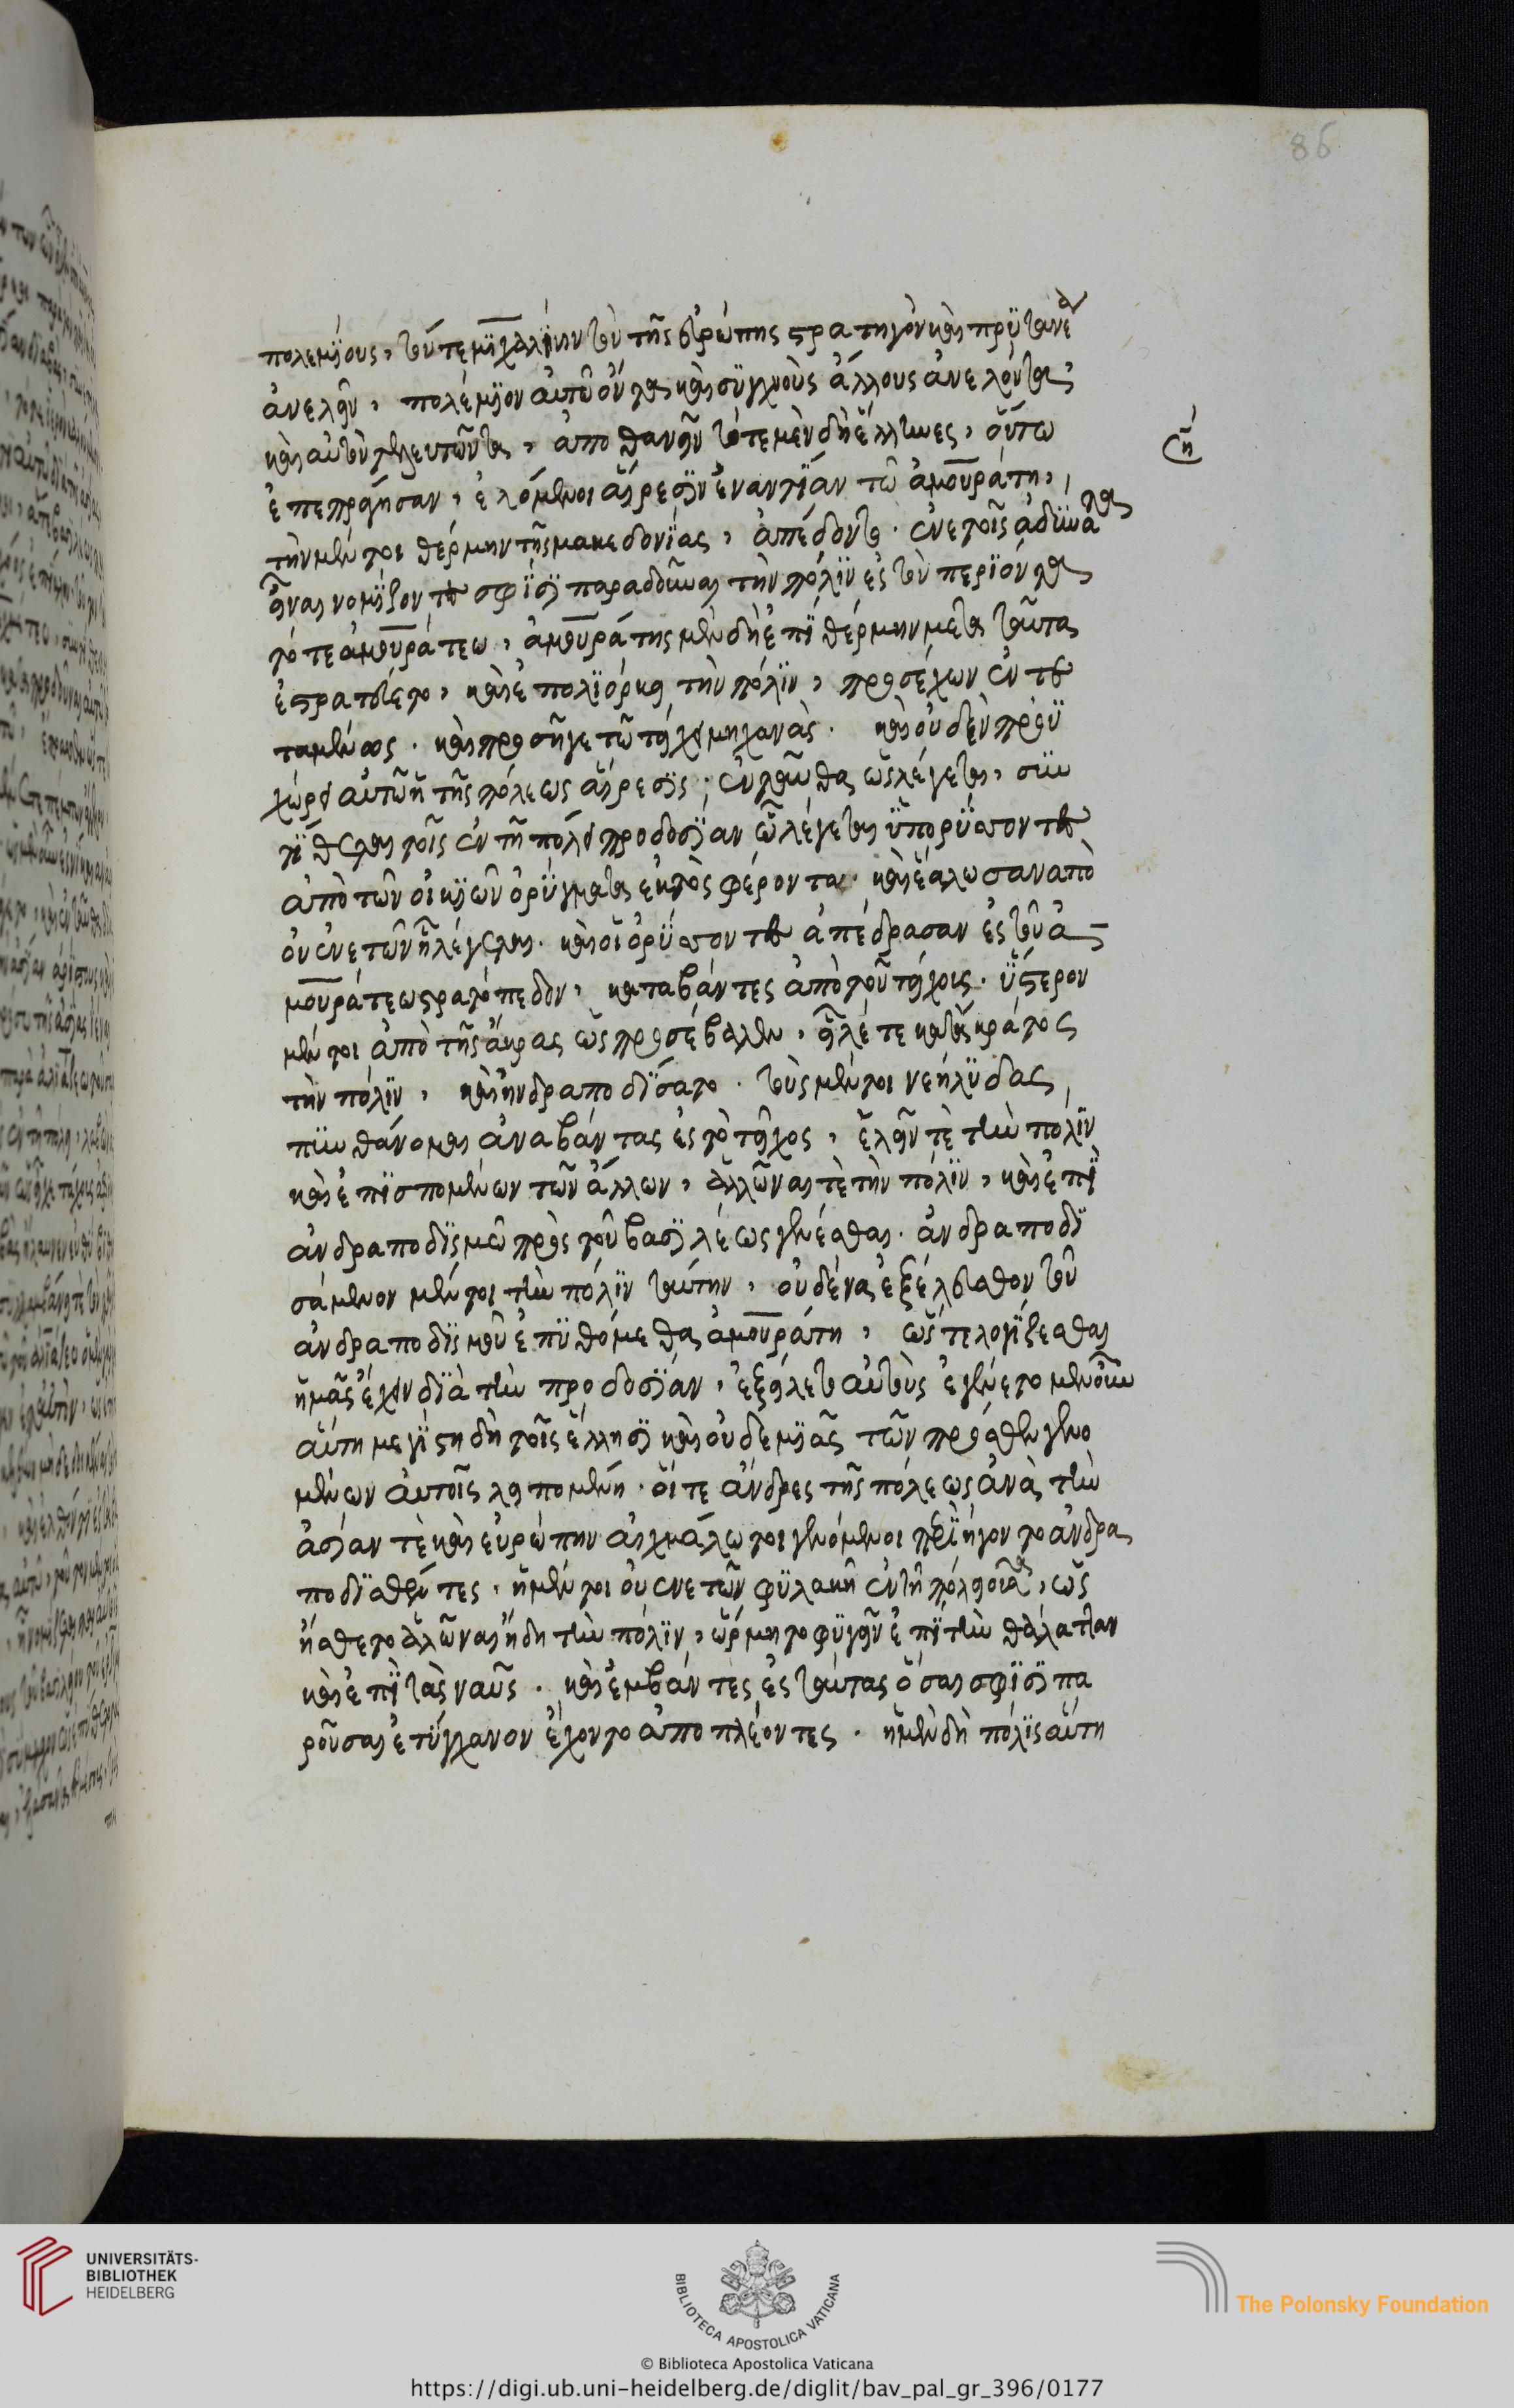 86
πολεμίους, τόν τε μιχαλίην τὸν τῆς εὐρώπης στρατηγὸν καὶ πρυτανέα
ἀνελεῖν, πολέμιον αὐτῷ ὄντα καὶ συχνοὺς ἄλλους ἀνελόντα,
καὶ αὐτὸν τελευτῶντα, ἀποθανεῖν. τότε μὲν δὴ ἕλληνες, οὕτω
ἐπεπράγησαν, ἑλόμενοι αἵρεσιν ἐναντίαν τῷ ἀμουράτη,
τὴν μέντοι θέρμην τῆς μακεδονίας, ἀπέδοντο. ἐνετοῖς ἀδύνατα
εἶναι νομίζοντες σφίσι παραδοῦναι τὴν πόλιν ἐς τὸν περιόντα
τότε ἀμουράτεω, ἀμουράτης μὲν δὴ ἐπὶ θέρμην μετὰ ταῦτα
ἐστρατεύετο, καὶ ἐπολιόρκει τὴν πόλιν, προσέχων ἐντε
ταμένως. καὶ προσῆγε τῷ τείχει μηχανάς. καὶ οὐδὲν προὐ
χώρει αὐτῷ ἡ τῆς πόλεως αἵρεσις, ἐνταῦθα ὡς λέγεται, συν
τίθεται τοῖς ἐν τῇ πόλει προδοσίαν ὣ λέγεται ὑπορύσσοντες
ἀπὸ τῶν οἰκιῶν ὀρύγματα ἐκτὸς φέροντα. καὶ ἑάλωσαν ἀπὸ
οὐενετῶν ᾗ λέγεται. καὶ οἱ ὀρύσσοντες ἀπέδρασαν ἐς τὸ ἀ
μουράτεω στρατόπεδον, καταβάντες ἀπὸ τοῦ τείχους. ὕστερον
μέντοι ἀπὸ τῆς ἄκρας ὡς προσέβαλλεν, εἷλέ τε κατὰ κράτος
τὴν πόλιν, καὶ ἠνδραποδίσατο. τοὺς μέντοι νεήλυδας
πυνθάνομαι ἀναβάντας ἐς τὸ τεῖχος, ἑλεῖν τὲ τὴν πόλιν
καὶ ἐπισπομένων τῶν ἄλλων, ἁλῶναι τὲ τὴν πόλιν, καὶ ἐπὶ
ἀνδραποδισμῷ πρὸς τοῦ βασιλέως γενέσθαι. ἀνδραποδι
σάμενον μέντοι τὴν πόλιν ταύτην, οὐδένα ἐξελέσθαι τοῦ
ἀνδραποδισμοῦ ἐπυθόμεθα ἀμουράτη, ὥστε λογίζεσθαι
ἡμᾶς ἔχειν διὰ τὴν προδοσίαν, ἐξείλετο αὐτοὺς ἐγένετο μὲν οὖν
αὕτη μεγίστη δὴ τοῖς ἕλλησι καὶ οὐδεμιᾶς τῶν πρόσθεν γενο
μένων αὐτοῖς λειπομένη. οἵ τε ἄνδρες τῆς πόλεως ἀνὰ τὴν
ἀσίαν τὲ καὶ εὐρώπην αἰχμάλωτοι γενόμενοι περιήγοντο ἀνδρα
ποδισθέντες. ἡ μέντοι οὐενετῶν φυλακὴ ἐν τῇ πόλει οὖσα, ὡς
ἤσθετο ἁλῶναι ἤδη τὴν πόλιν, ὥρμητο φυγεῖν ἐπὶ τὴν θάλατταν
καὶ ἐπὶ τὰς ναῦς. καὶ ἐμβάντες ἐς ταύτας ὅσαι σφίσι πα
ροῦσαι ἐτύγχανον ᾤχοντο ἀποπλέοντες. ἡ μὲν δὴ πόλις αὕτη
UNIVERSITÄTS-
BIBLIOTHEK
HEIDELBERG
BIBLIOTECA APOSTOLICA VATICANA
The Polonsky Foundation
© Biblioteca Apostolica Vaticana
https://digi.ub.uni-heidelberg.de/diglit/bav_pal_gr_396/0177